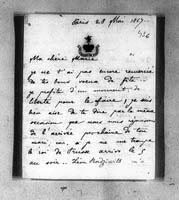 Paris 28 Mai 1867.
Ma chère Marie
je ne t'ai pas encore remercié
de tes bons voeux de fête.
je profite d'un moment de
liberté pour le faire, je suis
bien aise de te dire, par la même
occasion que nous nous réjouissons
de l'arrivée prochaine de ton
mari, car, à je ne me trompe
le roi de Prusse arrive le 5
au soir.